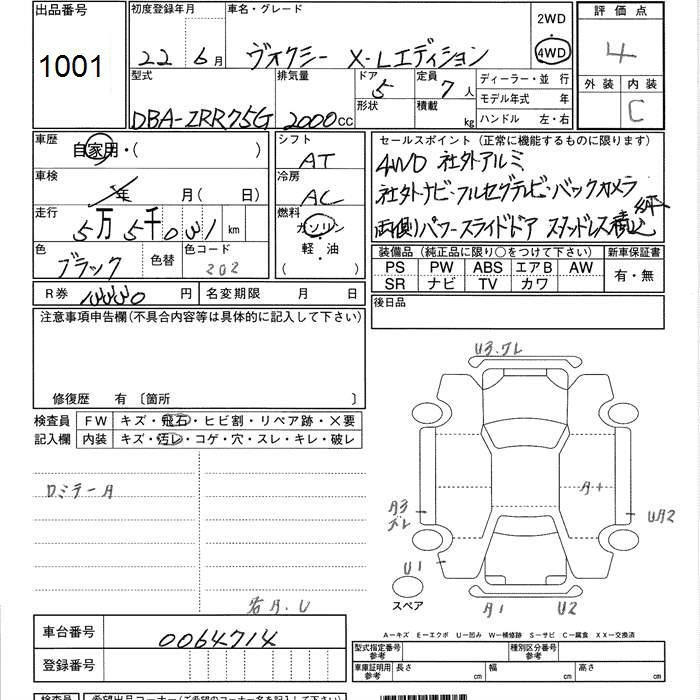 出品番号
1001
初度登録年月
22 6月
車名・グレード
ヴォクシー X-Lエディション
2WD
4WD
評価点
4
外装 内装
C
型式
DBA-ZRR75G
排気量
2000cc
ドア
5
形状
定員
7人
積載
kg
ディーラー・並行
モデル年式 年
ハンドル 左・右
車歴
自家用・( )
車検
年 月( 日)
走行
5万5千031km
色
ブラック
色替
色コード
202
シフト
AT
冷房
AC
燃料
ガソリン
軽・油
( )
セールスポイント (正常に機能するものに限ります)
4WD 社外アルミ
社外ナビ・フルセグテレビ・バックカメラ
両側パワースライドドア スタッドレス積込
装備品 (純正品に限り○をつけて下さい)
PS PW ABS エアB AW
SR ナビ TV カワ
新車保証書
有・無
R券 円
名変期限 月 日
後日品
注意事項申告欄(不具合内容等は具体的に記入して下さい)
修復歴 有 〔箇所 〕
検査員
記入欄
FW キズ・飛石・ヒビ割・リペア跡・×要
内装 キズ・汚レ・コゲ・穴・スレ・キレ・破レ
ロミテータ
若A.U
U3.グレ
A3
ズレ
A+
UA2
U1
スペア
A1
U2
A―キズ E―エクボ U―凹み W―補修跡 S―サビ C―腐食 XX―交換済
車台番号
0064714
登録番号
型式指定番号
参考
種別区分番号
参考
車庫証明用
参考
長さ cm
幅 cm
高さ cm
検査員
希望出品コーナー(ご希望のコーナー名を記入下さい)